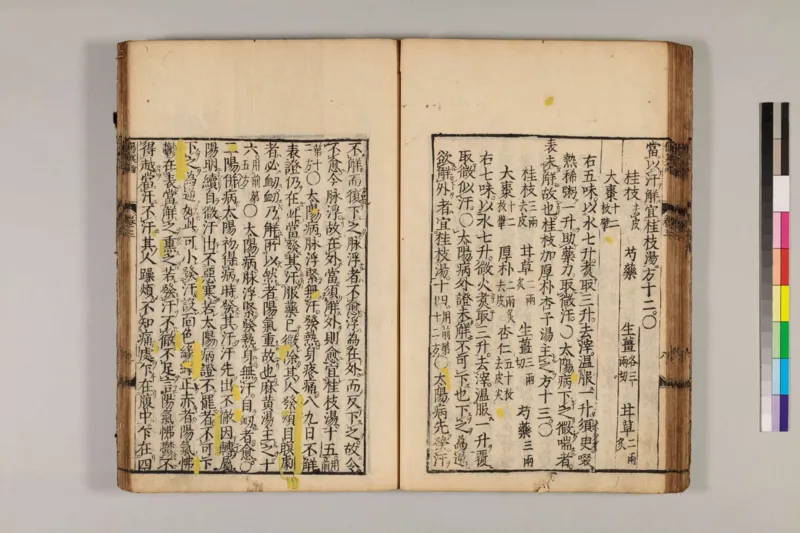 當以汗解宜桂枝湯方十二。〇
桂枝去皮 芍藥 生薑各三兩切 甘草二兩炙
大棗十二枚擘
右五味以水七升煑取三升去滓温服一升須臾啜
熱稀粥一升助藥力取微汗〇太陽病下之微喘者
表未解故也桂枝加厚朴杏子湯主之方十三〇
桂枝三兩去皮 甘草二兩炙 生薑三兩切 芍藥三兩
大棗十二枚擘 厚朴二兩炙去皮 杏仁五十枚去皮尖
右七味以水七升微火煑取三升去滓温服一升覆
取微似汗〇太陽病外證未解不可下也下之為逆
欲解外者宜桂枝湯十四用前第十二方〇太陽病先發汗
不解而復下之脉浮者不愈浮為在外而反下之故令
不愈今脉浮故在外當須解外則愈宜桂枝湯十五用前
第十二方〇太陽病脉浮緊無汗發熱身疼痛八九日不解
表證仍在此當發其汗服藥已微除其人發煩目瞑劇
者必衂衂乃解所以然者陽氣重故也麻黃湯主之十
六用前第五方〇太陽病脉浮緊發熱身無汗自衂者愈〇
二陽併病太陽初得病時發其汗汗先出不徹因轉屬
陽明續自微汗出不惡寒若太陽病證不罷者不可下
下之為逆如此可小發汗設面色緣緣正赤者陽氣怫
鬱在表當解之熏之若發汗不徹不足言陽氣怫鬱不
得越當汗不汗其人躁煩不知痛處乍在腹中乍在四